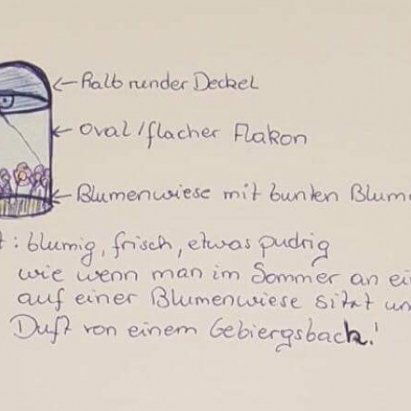 ← Halb runder Deckel
← Oval/flacher Flakon
← Blumenwiese mit bunten Blum
: blumig, frisch, etwas pudrig
wie wenn man im Sommer an ei
auf einer Blumenwiese sitzt un
Duft von einem Gebiergsbach!